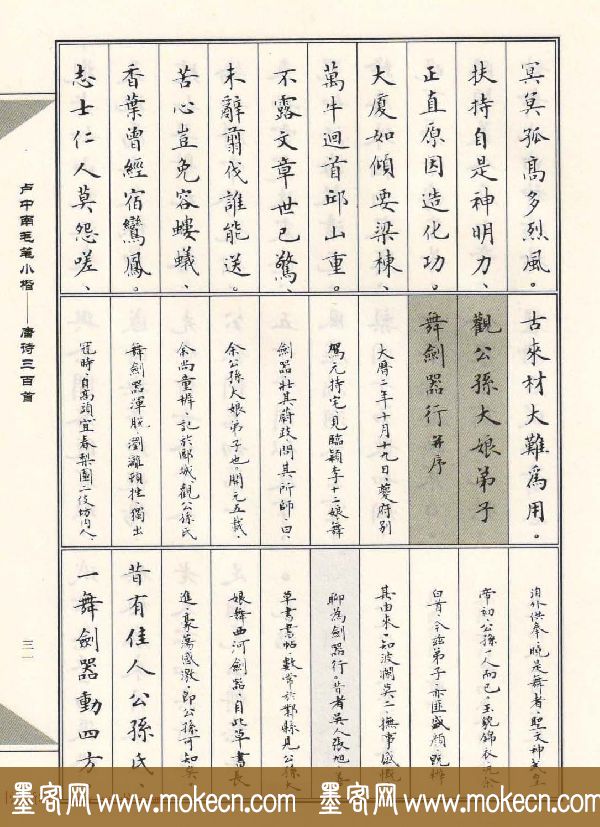 冥冥孤高多烈風。
扶持自是神明力、
正直原因造化功。
大廈如傾要梁棟、
萬牛迴首邱山重。
不露文章世已驚
未辭翦伐誰能送。
苦心豈免容螻蟻、
香葉曾經宿鸞鳳。
志士仁人莫怨嗟、
古來材大難為用。
觀公孫大娘弟子
舞劍器行 并序
大曆二年十月十九日、夔府別
駕元持宅見臨潁李十二娘舞
劍器、壯其蔚跂、問其所師、曰、
余公孫大娘弟子也。開元五載、
余尚童稚、記於郾城觀公孫氏
舞劍器渾脫、瀏灕頓挫、獨出
冠時、自高頭宜春梨園二伎坊內人、
洎外供奉、曉是舞者、聖文神武皇
帝初、公孫一人而已。玉貌錦衣、況余
白首、今茲弟子、亦匪盛顏。既辨
其由來、知波瀾莫二、撫事感慨、
聊為劍器行。昔者吳人張旭、善
草書書帖、數常於鄴縣見公孫大
娘舞西河劍器、自此草書長
進、豪蕩感激、即公孫可知矣
昔有佳人公孫氏、
一舞劍器動四方
卢中南毛笔小楷——唐诗三百首
三一
墨客网 www.mokecn.com 墨客网 www.mokecn.com